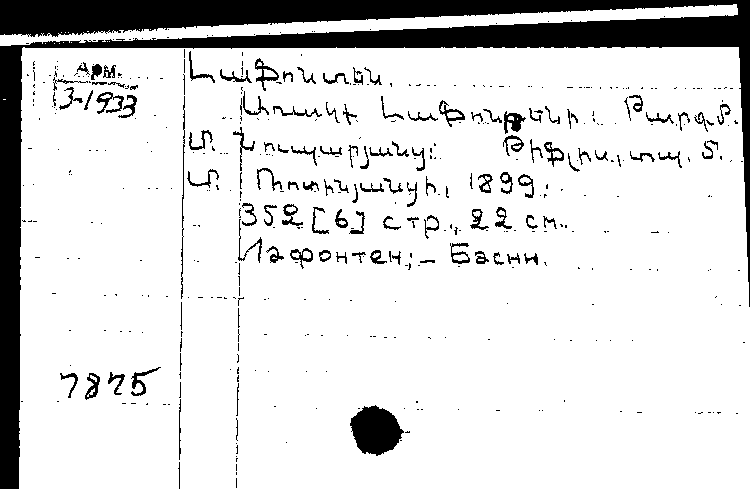 Арм.
3-1933
Լաֆոնտեն.
Առակք Լաֆոնտենի: Թարգմ.
Մ. Նուպարյանց: Թիֆլիս, տպ. Մ.
Մ. Ռոտինյանցի, 1899:
352 [6] стр., 22 см.
Лафонтен; – Басни.
7875